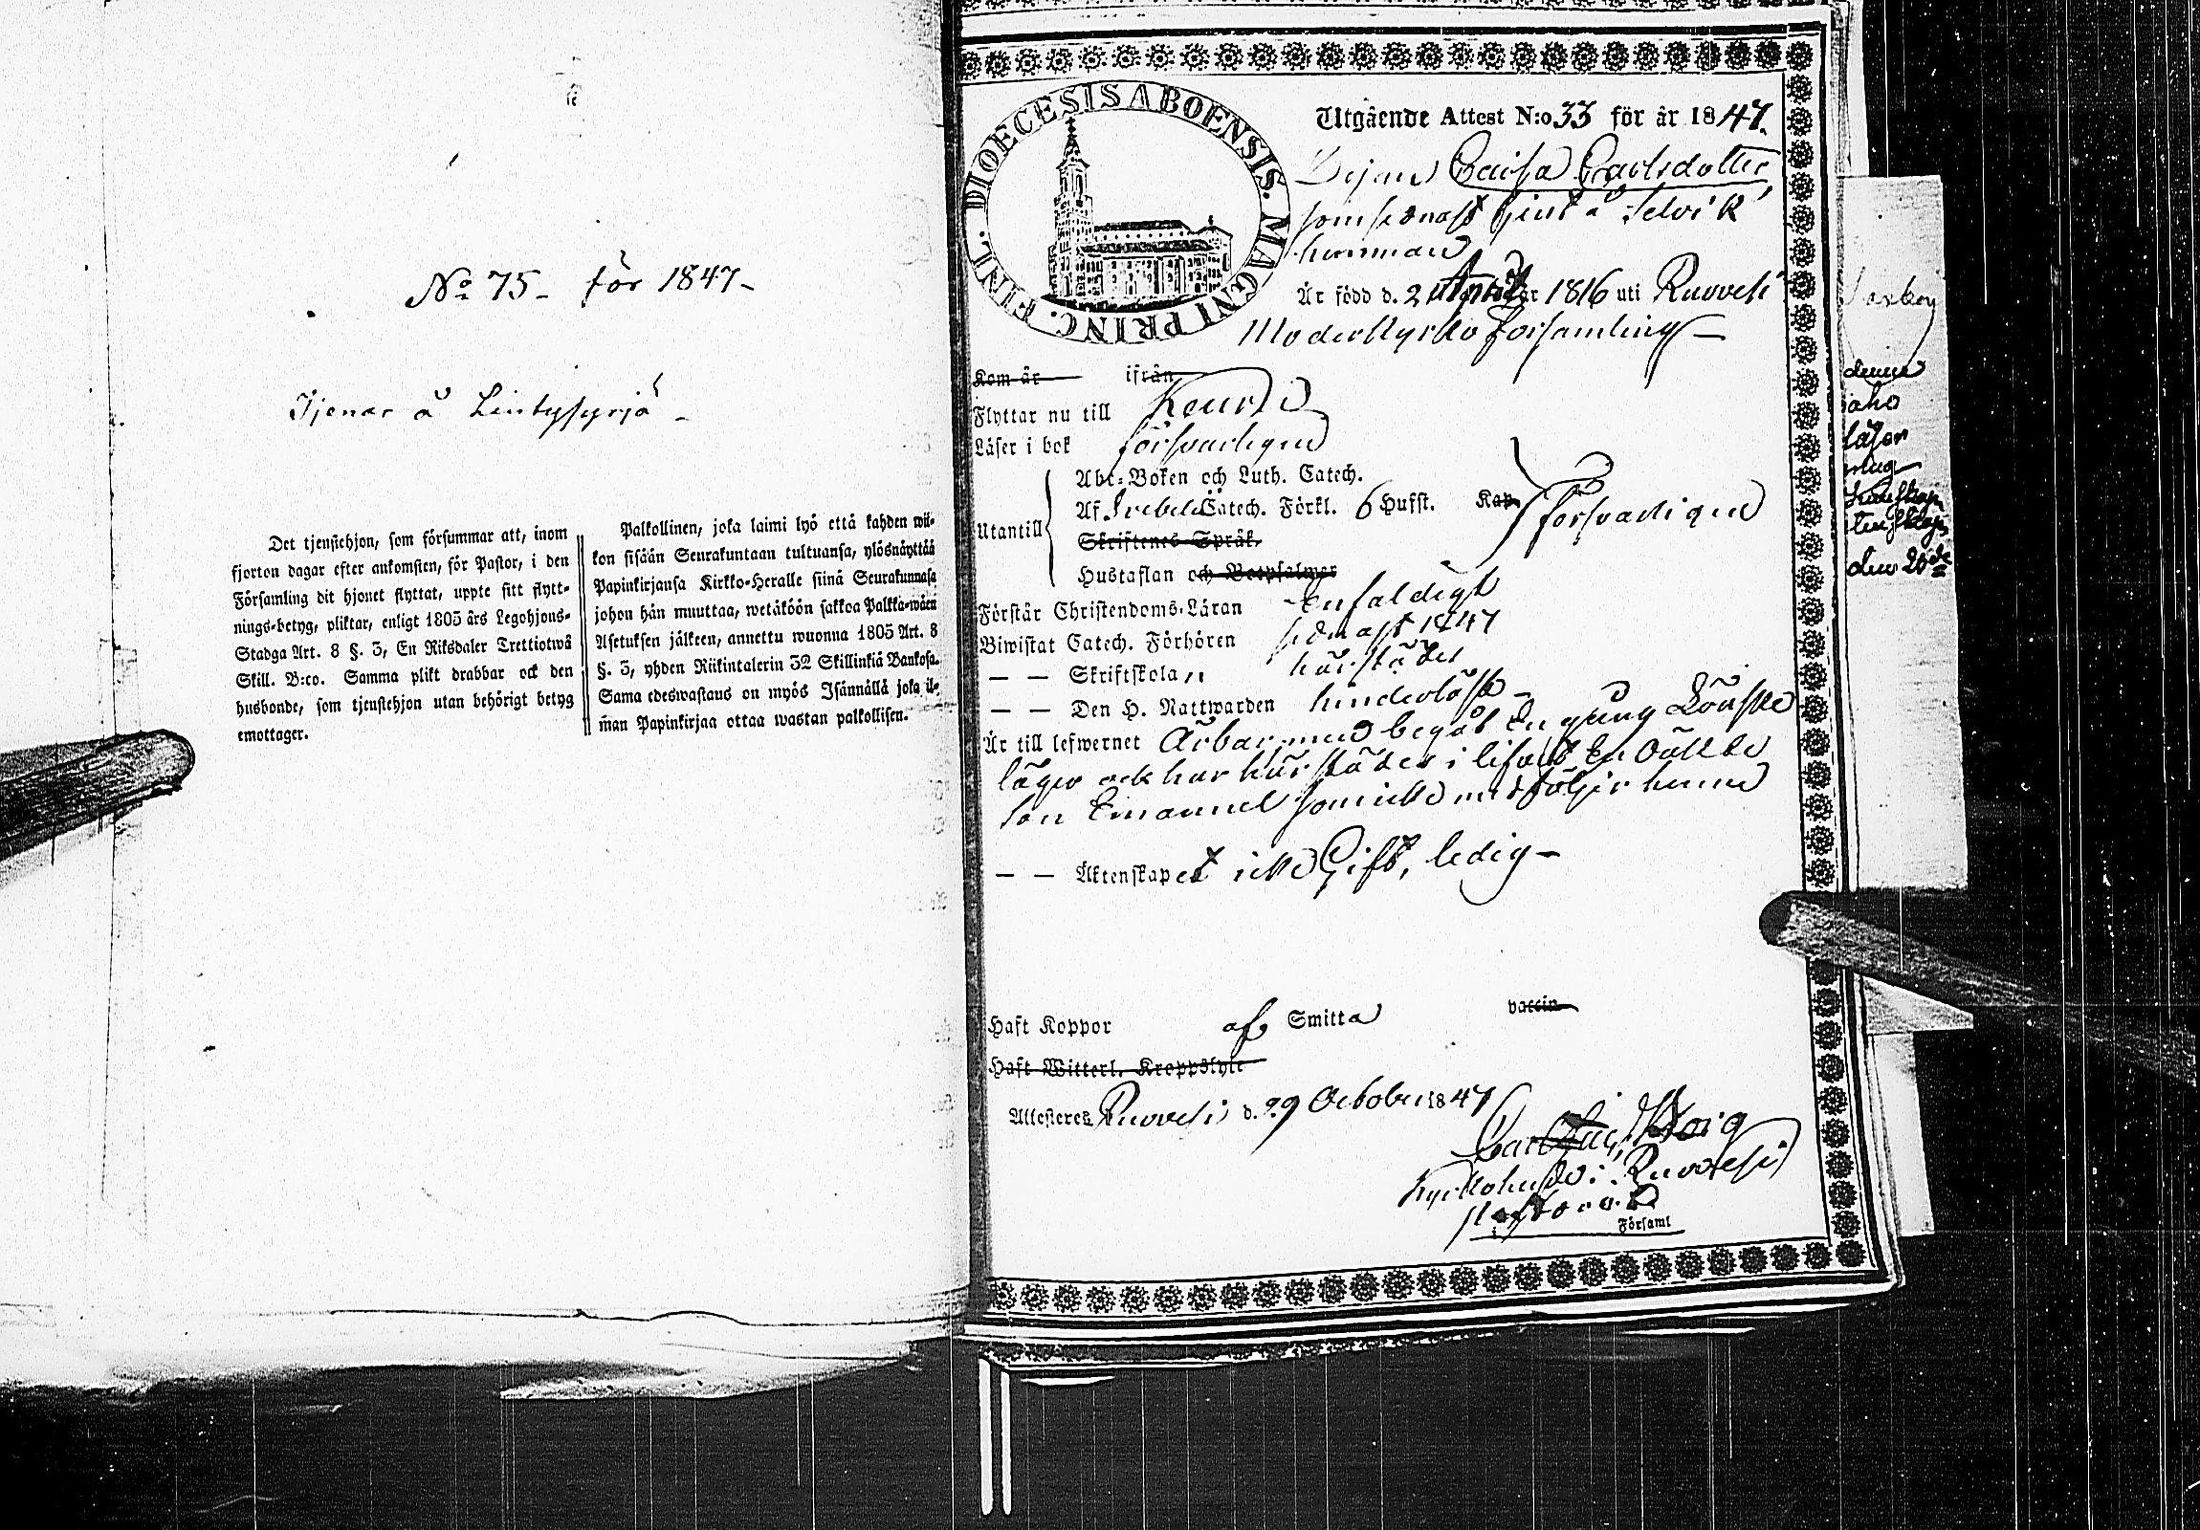 No 75 - för 1847 -
Tjenar å
Det tjenstehjon, som försummar att, inom
fjorton dagar efter ankomsten, för Pastor, i den
Församling dit hjonet flyttat, uppte sitt flytt-
nings-betyg, pliktar, enligt 1805 års Legohjons-
Stadga Art. 8 §. 3, En Riksdaler Trettiotwå
Skill. B:co. Samma plikt drabbar ock den
husbonde, som tjenstehjon utan behörigt betyg
emottager.
Palkollinen, joka laimi lyö että kahden wii-
kon sisään Seurakuntaan tultuansa, ylösnäyttää
Papinkirjansa Kirkko-Herralle siinä Seurakunnasa
johon hän muuttaa, wetäköön sakkoa Palkka-wäen
Asetuksen jälkeen, annettu wuonna 1805 Art. 8
§. 3, yhden Riikintalerin 32 Skillinkiä Bankosa.
Sama edeswastaus on myös Isännällä joka il-
man Papinkirjaa ottaa wastan palkollisen.
DIOECESIS ABOENSIS. MAGNI PRINC. FINL.
Utgående Attest N:o 33 för år 1847.
Pigan Caisa Carlsdotter
som sednast tjent å Selvik
hemman
Är född d. 2 år 1816 uti Ruovesi
Moderkyrko församling -
Kom år ifrån
Flyttar nu till Keuru
Läser i bok försvarligen
Utantill
Abc-Boken och Luth. Catech.
Af Svebelii Catech. Förkl. 6 Hufst. Kap försvarligen
Skriftenes Språk.
Hustaflan och Botpsalmer
Förstår Christendoms-Läran Enfaldigt
Biwistat Catech. Förhören sednast 1847
— — Skriftskola,, härstädes
— — Den H. Nattwarden hinderlöst -
Är till lefwernet Ärbar, men begåt En gång Lönske
läger och har härstädes i lifvet En oäkta
son Emanuel som icke medföljer henne
— — Äktenskapet icke Gift, ledig -
Haft Koppor af Smitta vaccin
Haft Witterl. Kroppslyte
Attesteras Ruovesi d. 29 October 1847
Carl
Kyrkoherde i Ruovesi
Församl
denna
aho
läser
den 20de